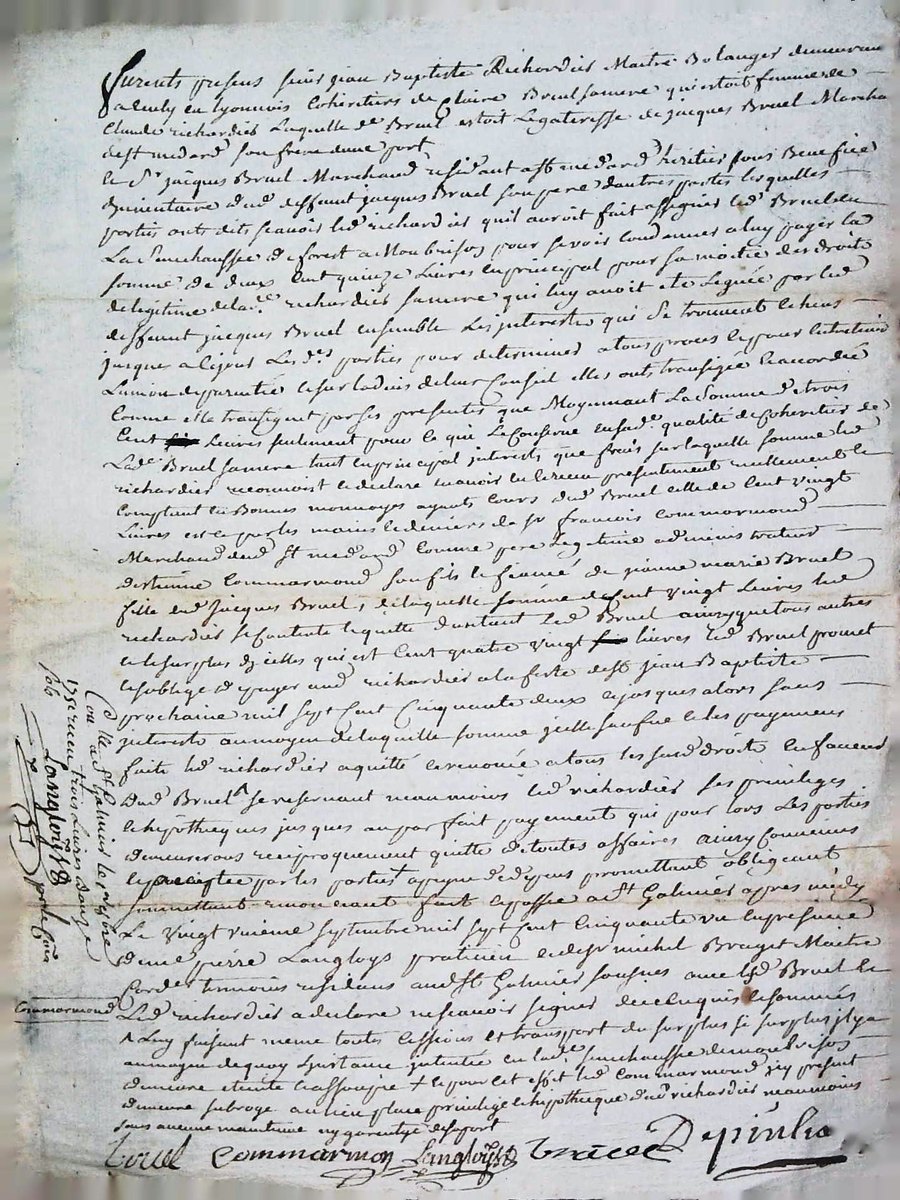 Furents presens sieur jean Baptiste Richardier Maitre Bolanger demeurant
a en lyonnois coheritiers de Claire Bruel sa mere qui estoit femme de
Claude richardier Laquelle de. Bruel estoit Legateresse de jacques Bruel Marchand
de st medard son frere dune part
le Sr. jacques Bruel Marchand residant a st medard heritier sous Benefice
dinventaire dud deffunt jacques Bruel son pere dautres partes lesquelles
parties ont dits scavoir led richardier quil auroit fait assigner led Bruel en
La Senechaussee de forest a Monbrison pour se voir condamner a luy payer La
somme de deux Cent quinze Livres en principal pour sa moitie des droits
de legitime de lad.e richardier sa mere qui luy avoit ete Leguée par led
deffunt jacques Bruel ensemble Les interests qui se trouvent echeus
jusque a ce jour Les d.es parties pour determiner a tous proces et pour entretenir
Lunion de parentée et sur lavis de leur Conseil elles onts transigée et accordée
Comme elle transigent par ses presentes que Moyennant La Somme de trois
Cent Livres seulement pour ce qui Le Conserne en sad.e qualité de Coheritier de
Lad.e Bruel sa mere tant en principal interests que frais sur laquelle somme led
richardier reconnoist et declare en avoir eu et receu presentement reellement et
Comptant en Bonnes monnoyes ayants Cours dud Bruel celle de Cent vingt
Livres et ce par les mains et deniers de sr francois Commarmond
Marchand dud st medard Comme pere Legitime administrateur
destienne Commarmond son fils et fiancé de jeanne marie Bruel
fille dud Jacques Bruel, de laquelle somme de Cent vingt Livres led
richardier se Contente et quitte led Bruel ainsy que tous autres
et le surplus dicelles qui est Cent quatre vingt livres led Bruel promet
et soblige de payer aud richardier a la feste de st jean Baptiste
prochaine mil sept Cent Cinquante deux et jusques alors sans
interests au moyen de laquelle somme et les payemens
faits led richardier a quitté et renoncé a tous les susd droits en faveur
dud Bruel se reservant neaumoins led richardier ses privileges
et hypotheques jusques au parfait payements qui pour lors Les parties
demeureront reciproquement quitte de toutes affaires ainsy Convenus
et acceptée par les parties a peyne de depens promettant obligeant
soumettant renonceant fait et passée a st Galmier appres midy
Le vingt unieme septembre mil sept Cent Cinquante un en presence
de me pierre Langloys praticien et de sr michel Maitre
Cord.er temoins residans aud st Galmier sousnes avec led Bruel et
Led richardier a declare ne scavoir signer de ce enquis et sommés
Luy faisant meme toutes Cessions et transport du surplus si surplus il y a
au moyen de quoy Linstance intentée en lad.e Senechaussee de monbrison
demeure eteinte et assoupie et pour Cet effet led Commarmond icy present
demeure subroge au lieu place privilege et hypotheque dud richardier neaumoins
sans aucune maintenue ny garentye de sa part
bruel Commarmon Langloys Depinhac
Con.lle a st Galmier le
1751 receu trois Livres douze
sols Langlois
Commarmond